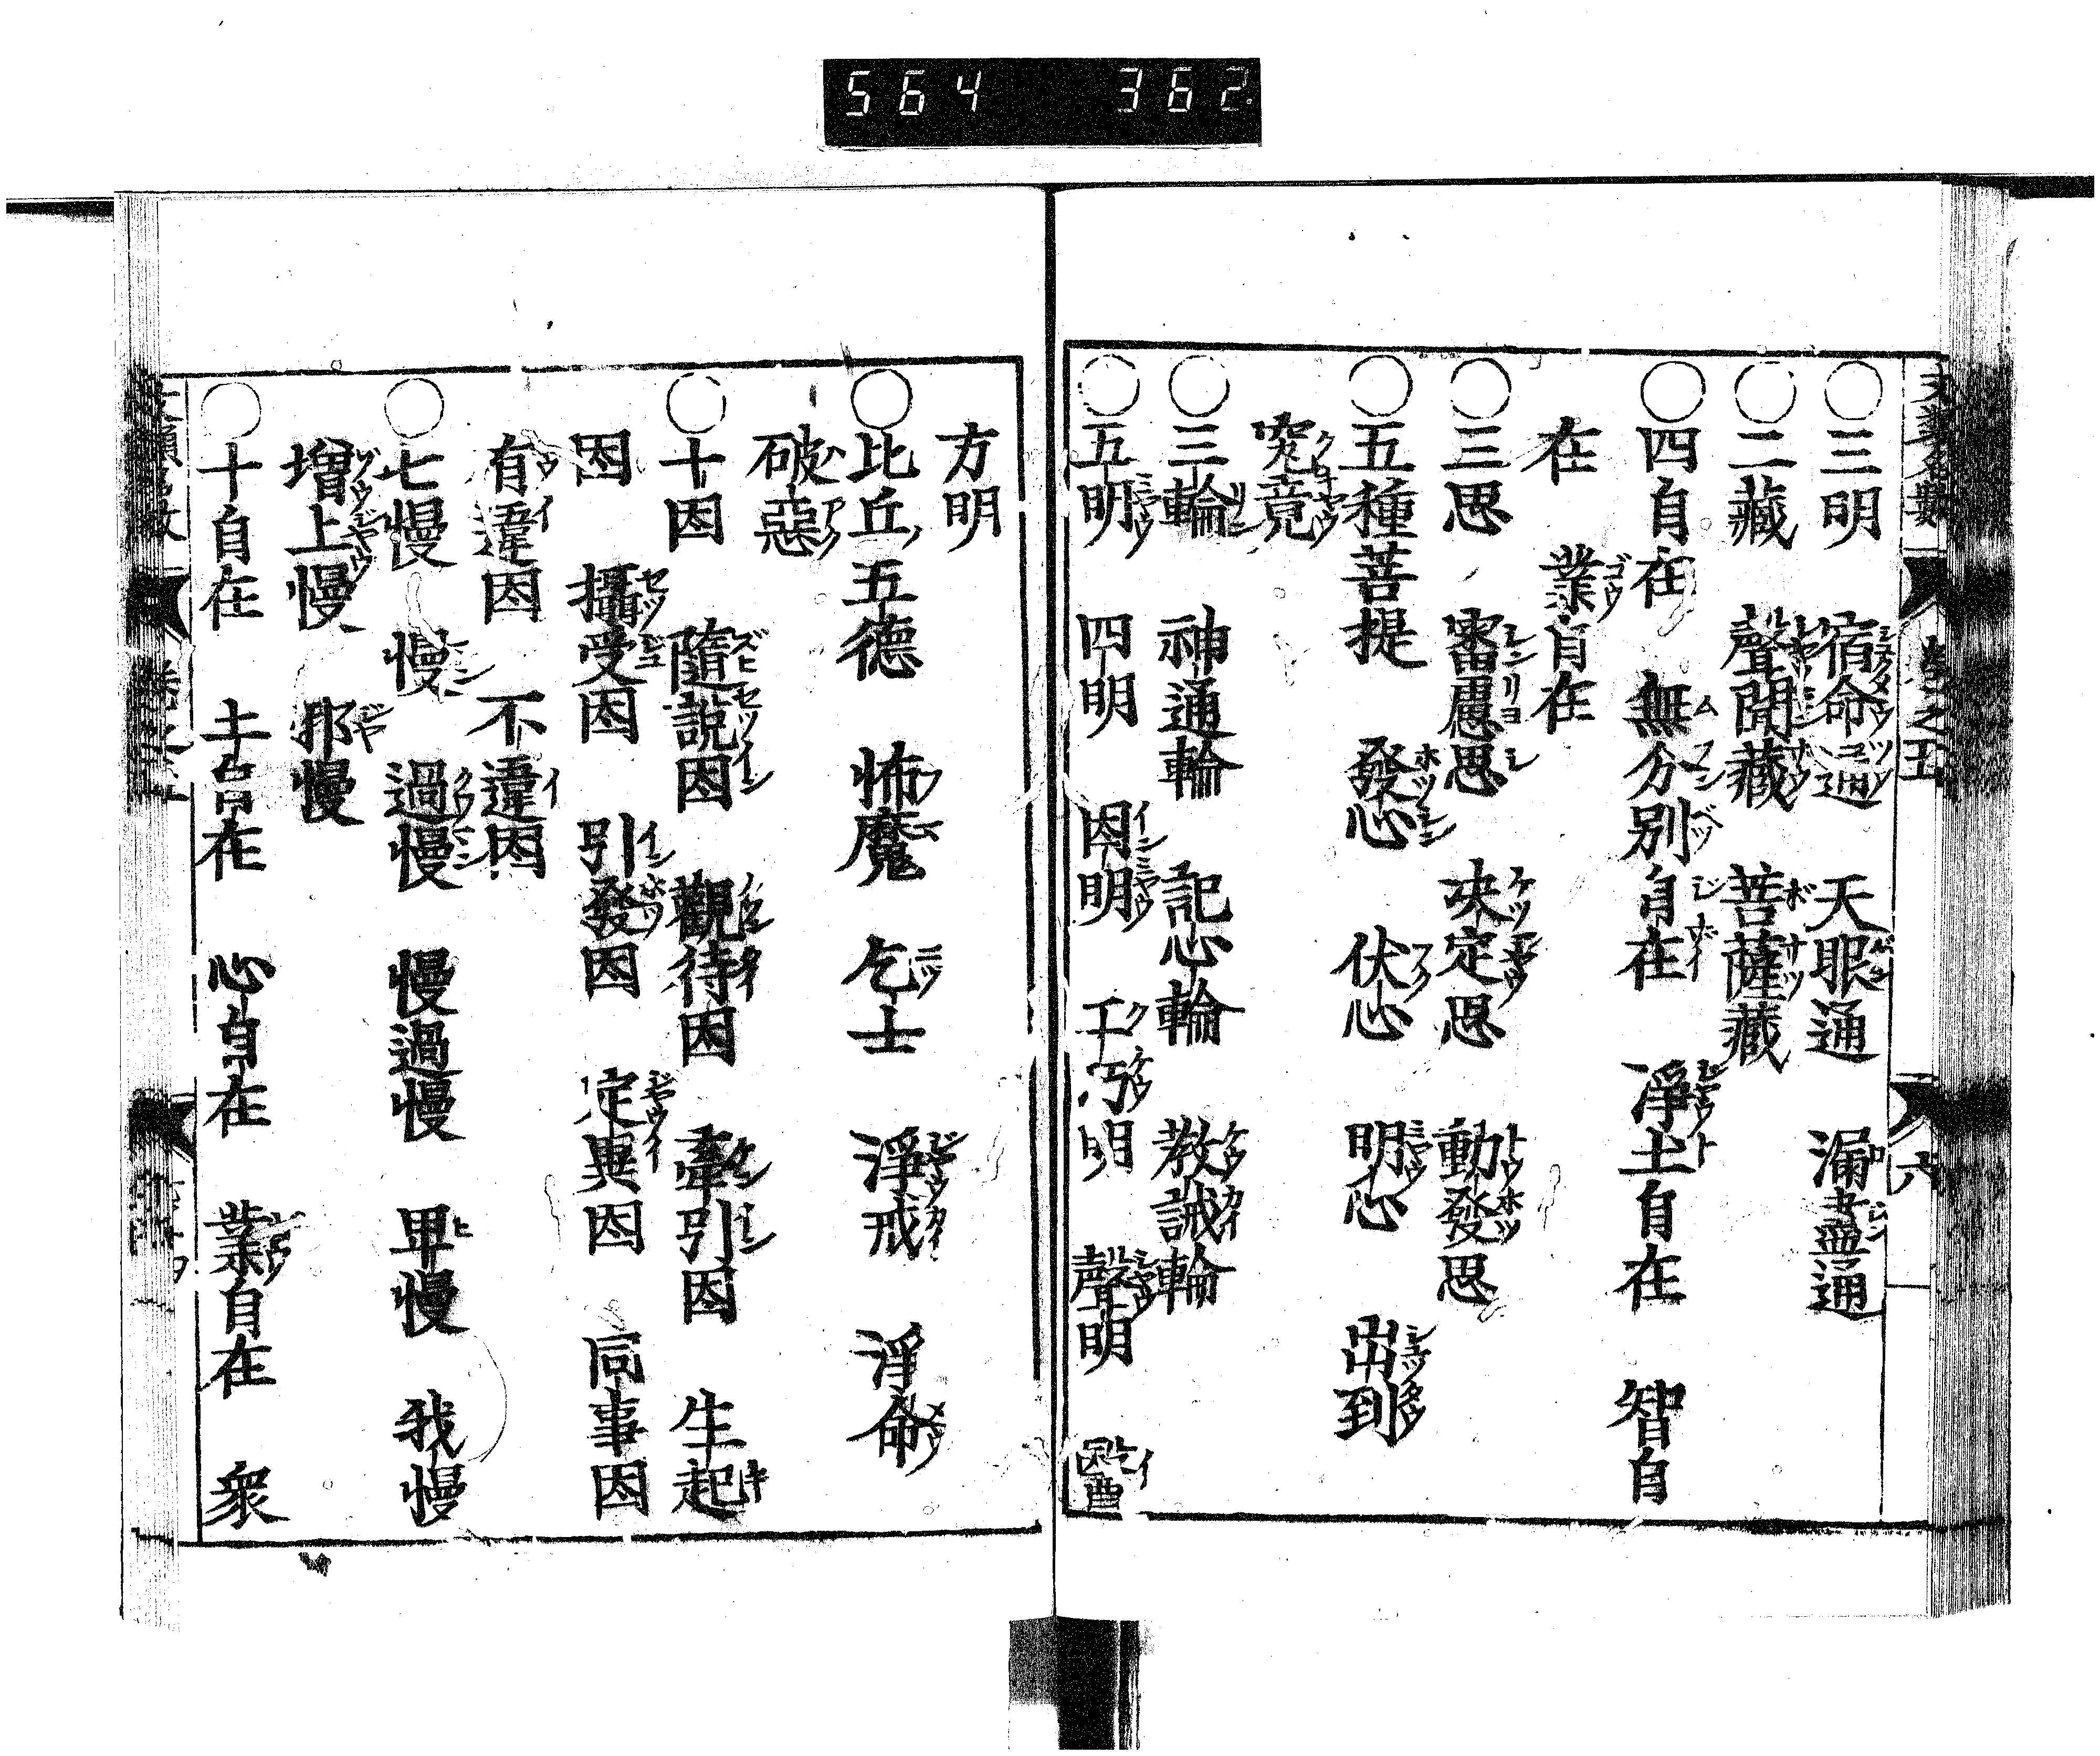 564 362
三明 宿命通 天眼通 漏盡通
二藏 聲聞藏 菩薩藏
四自在 無分別自在 淨土自在 智自
在 業自在
三思 審慮思 决定思 動發思
五種菩提 發心 伏心 明心 出到
究竟
三輪 神通輪 記心輪 教誡輪
五明 四明 因明 工巧明 聲明 醫
方明
比丘五德 怖魔 乞士 淨戒 淨命
破惡
十因 隨説因 觀待因 牽引因 生起
因 攝受因 引發因 定異因 同事因
有違因 不違因
七慢 慢 過慢 慢過慢 卑慢 我慢
增上慢 邪慢
十自在 心自在 業自在 衆